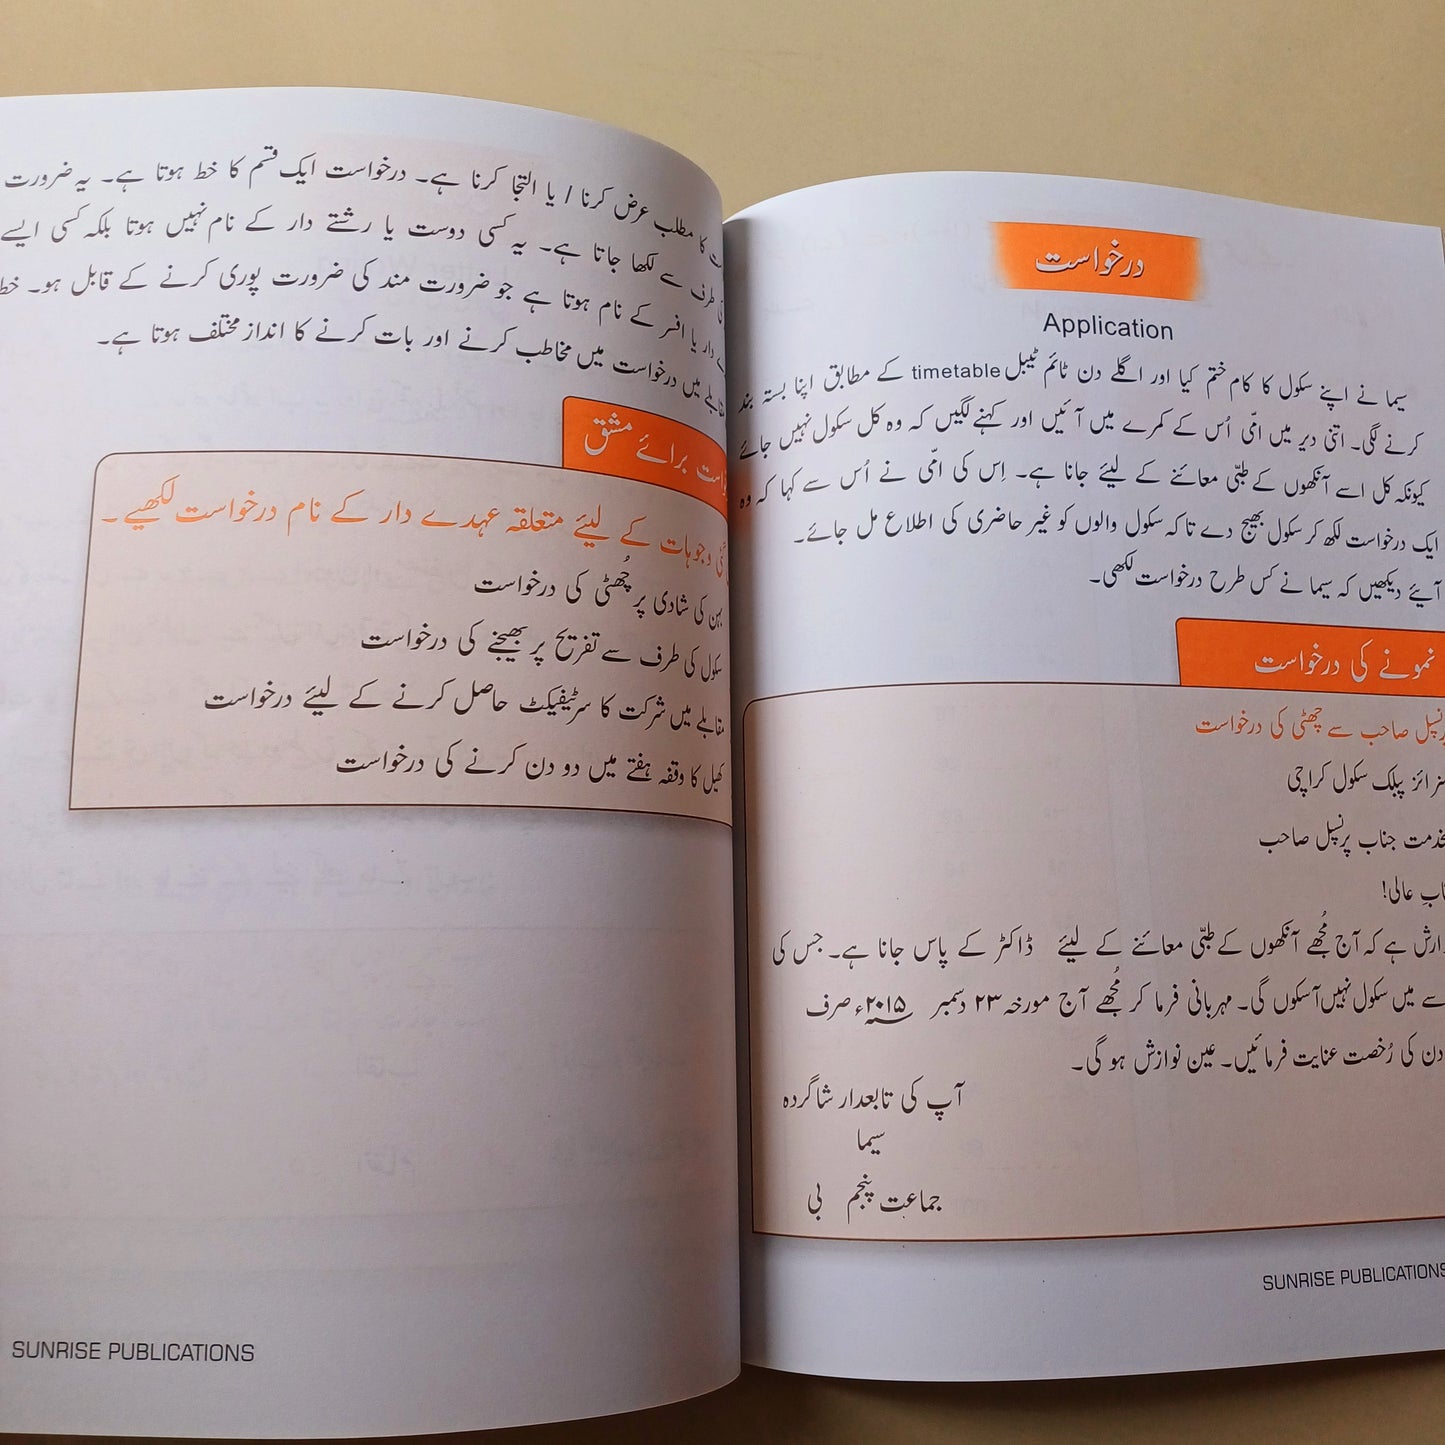 درخواست
Application
سیما نے اپنے سکول کا کام ختم کیا اور اگلے دن ٹائم ٹیبل timetable کے مطابق اپنا بستہ بند
کرنے لگی۔ اتنی دیر میں امّی اُس کے کمرے میں آئیں اور کہنے لگیں کہ وہ کل سکول نہیں جائے
کیونکہ کل اسے آنکھوں کے طبّی معائنے کے لیئے جانا ہے۔ اِس کی امّی نے اُس سے کہا کہ وہ
ایک درخواست لکھ کر سکول بھیج دے تاکہ سکول والوں کو غیر حاضری کی اطلاع مل جائے۔
آیئے دیکھیں کہ سیما نے کس طرح درخواست لکھی۔
نمونے کی درخواست
صاحب سے چھٹی کی درخواست
پبلک سکول کراچی
جناب پرنسپل صاحب
عالی!
ہے کہ آج مُجھے آنکھوں کے طبّی معائنے کے لیئے ڈاکٹر کے پاس جانا ہے۔ جس کی
سے میں سکول نہیں آسکوں گی۔ مہربانی فرما کر مُجھے آج مورخہ ۲۳ دسمبر ۲۰۱۵ء صرف
دن کی رُخصت عنایت فرمائیں۔ عین نوازش ہو گی۔
آپ کی تابعدار شاگردہ
سیما
جماعت پنجم بی
SUNRISE PUBLICATIONS
کا مطلب عرض کرنا / یا التجا کرنا ہے۔ درخواست ایک قسم کا خط ہوتا ہے۔ یہ ضرورت
طرف سے لکھا جاتا ہے۔ یہ کسی دوست یا رشتے دار کے نام نہیں ہوتا بلکہ کسی ایسے
دار یا افسر کے نام ہوتا ہے جو ضرورت مند کی ضرورت پوری کرنے کے قابل ہو۔ خط
مقابلے میں درخواست میں مخاطب کرنے اور بات کرنے کا انداز مختلف ہوتا ہے۔
برائے مشق
وجوہات کے لیئے متعلقہ عہدے دار کے نام درخواست لکھیے۔
بہن کی شادی پر چُھٹی کی درخواست
سکول کی طرف سے تفریح پر بھیجنے کی درخواست
مقابلے میں شرکت کا سرٹیفیکٹ حاصل کرنے کے لیئے درخواست
کھیل کا وقفہ ہفتے میں دو دن کرنے کی درخواست
SUNRISE PUBLICATIONS